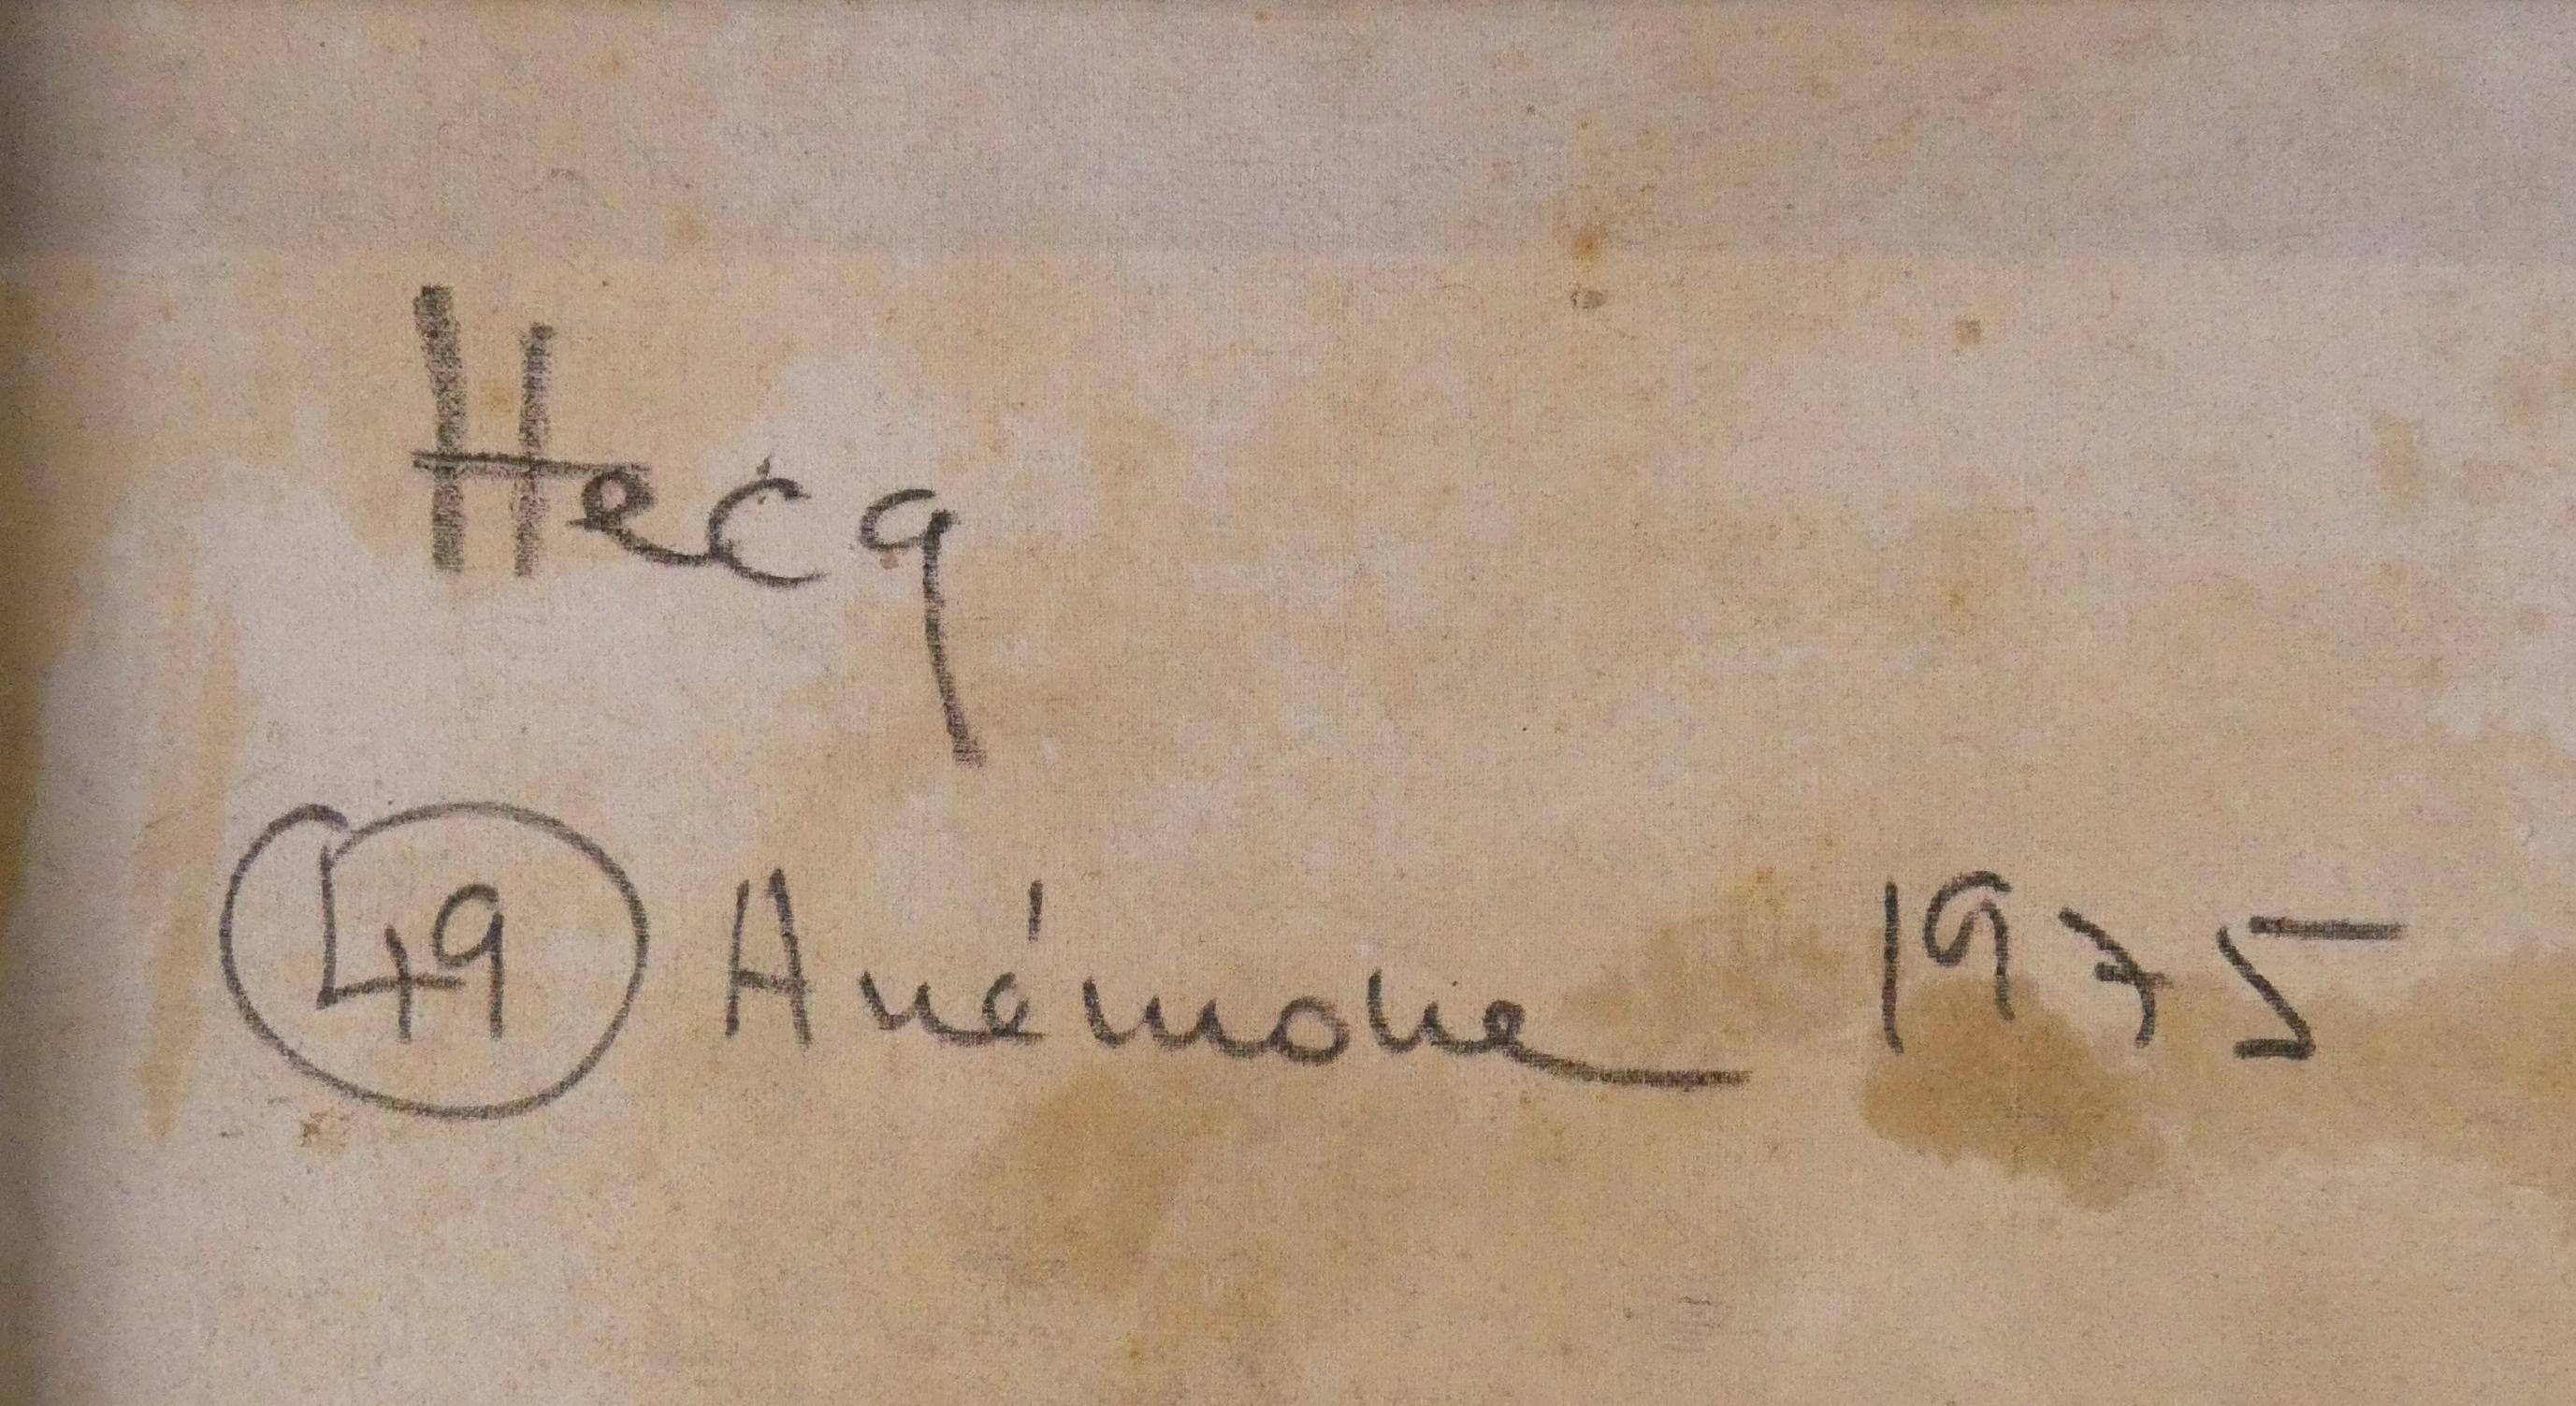 Hecq
49 Anémone 1975